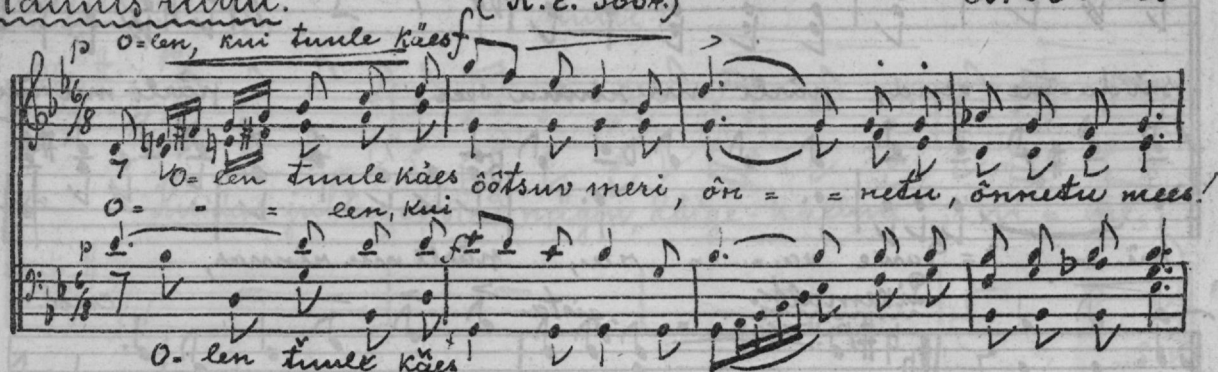 O=len, kui tuule käes
O=len tuule käes õõtsuv meri, õn = = netu, õnnetu mees!
O= - = len, kui
O-len tuule käes